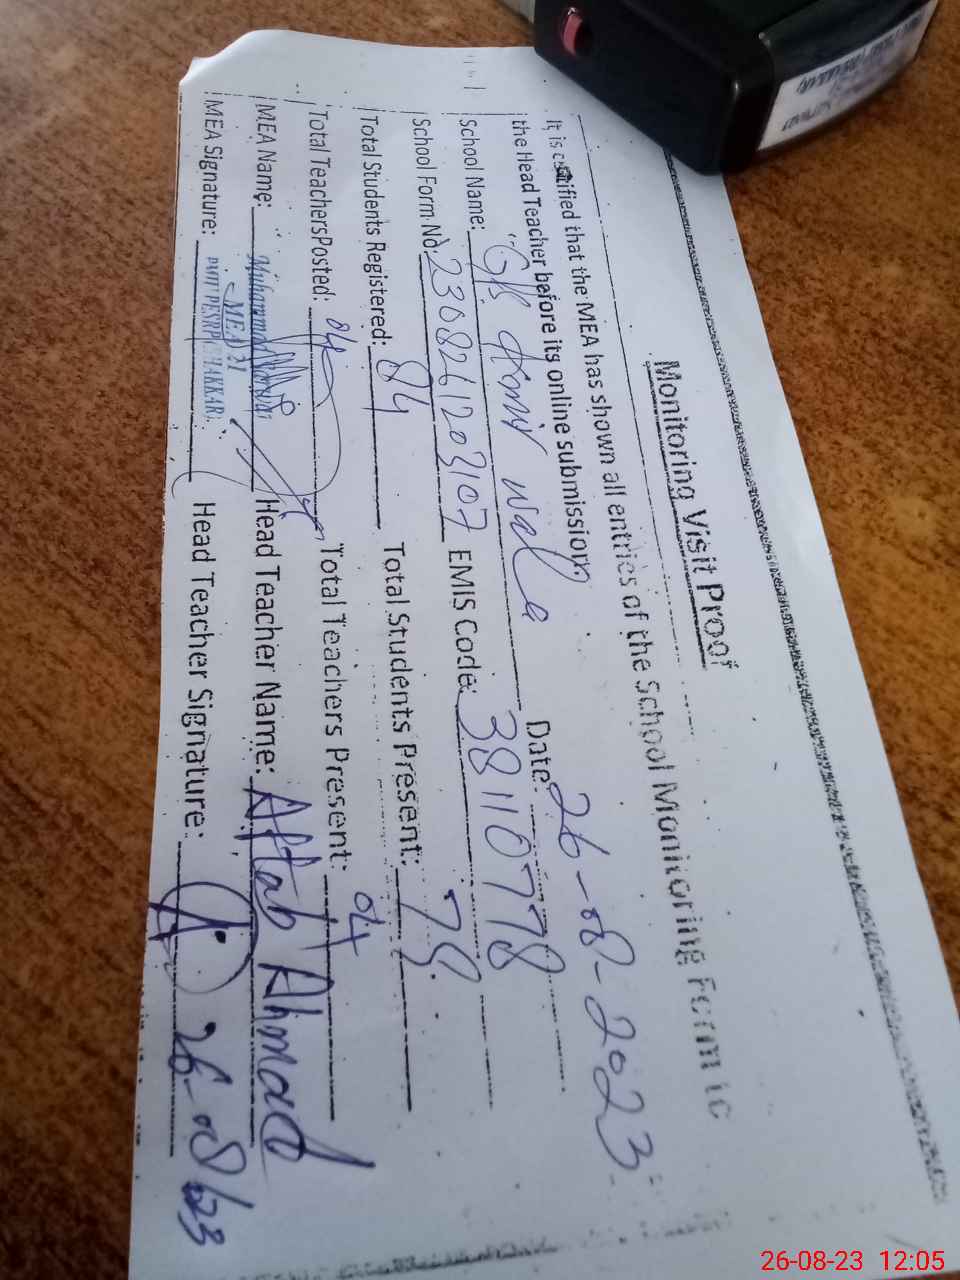 Monitoring Visit Proof
It is certified that the MEA has shown all entries of the School Monitoring Form to
the Head Teacher before its online submission.
School Name: wala Date: 26-08-2023
School Form No. 2308261203107 EMIS Code: 38110778
Total Students Registered: 84 Total Students Present: 78
Total Teachers Posted: 04 Total Teachers Present: 04
MEA Name: Muhammad Head Teacher Name: Aftab Ahmad
MEA 31
MEA Signature: Head Teacher Signature: 26-08/23
26-08-23 12:05